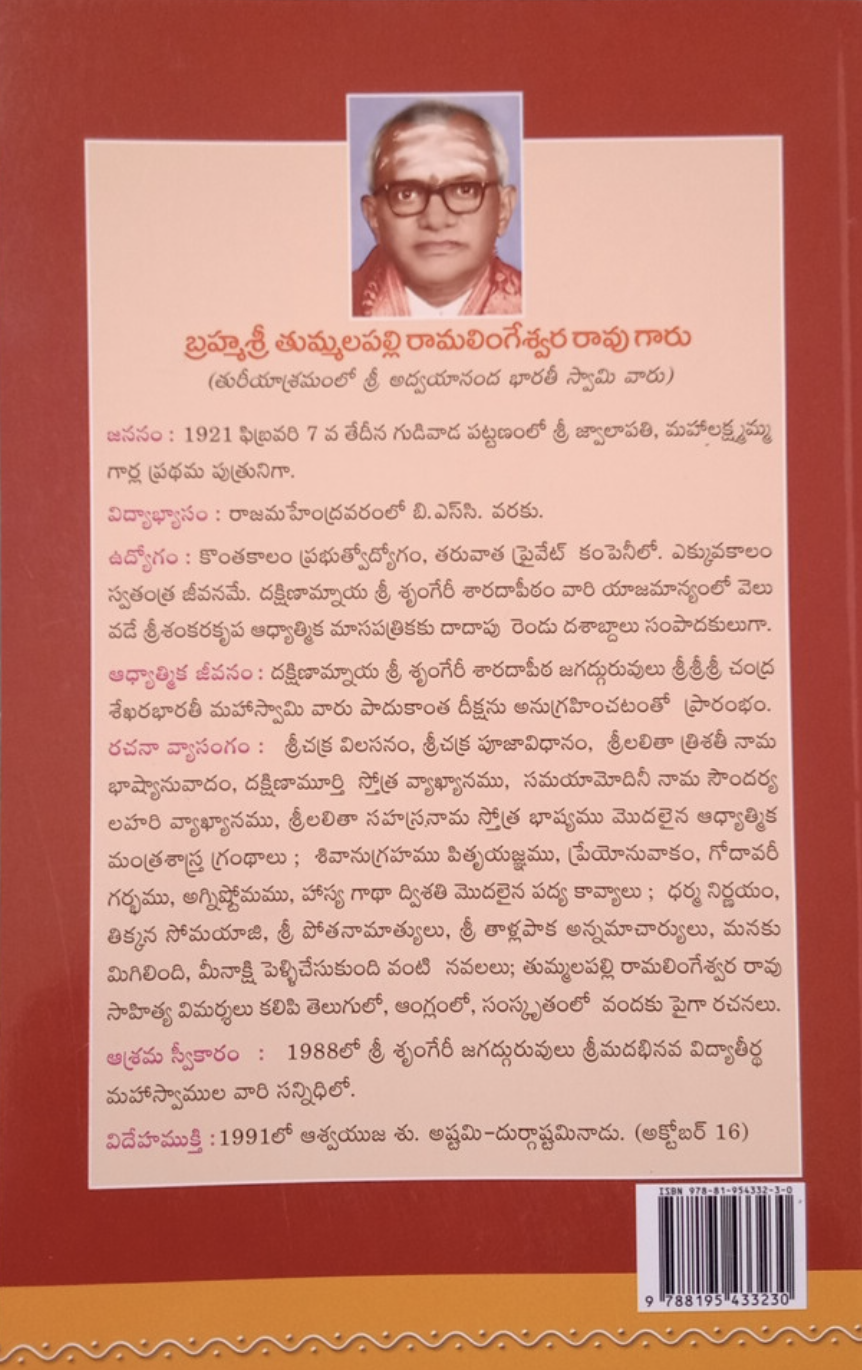 బ్రహ్మశ్రీ తుమ్మలపల్లి రామలింగేశ్వర రావు గారు
(తురీయాశ్రమంలో శ్రీ అద్వయానంద భారతీ స్వామి వారు)
జననం : 1921 ఫిబ్రవరి 7 వ తేదీన గుడివాడ పట్టణంలో శ్రీ జ్వాలాపతి, మహాలక్ష్మమ్మ
గార్ల ప్రథమ పుత్రునిగా.
విద్యాభ్యాసం : రాజమహేంద్రవరంలో బి.ఎస్‌సి. వరకు.
ఉద్యోగం : కొంతకాలం ప్రభుత్వోద్యోగం, తరువాత ప్రైవేట్ కంపెనీలో. ఎక్కువకాలం
స్వతంత్ర జీవనమే. దక్షిణామ్నాయ శ్రీ శృంగేరీ శారదాపీఠం వారి యాజమాన్యంలో వెలు
వడే శ్రీశంకరకృప ఆధ్యాత్మిక మాసపత్రికకు దాదాపు రెండు దశాబ్దాలు సంపాదకులుగా.
ఆధ్యాత్మిక జీవనం : దక్షిణామ్నాయ శ్రీ శృంగేరీ శారదాపీఠ జగద్గురువులు శ్రీశ్రీశ్రీ చంద్ర
శేఖరభారతీ మహాస్వామి వారు పాదుకాంత దీక్షను అనుగ్రహించటంతో ప్రారంభం.
రచనా వ్యాసంగం : శ్రీచక్ర విలసనం, శ్రీచక్ర పూజావిధానం, శ్రీలలితా త్రిశతీ నామ
భాష్యానువాదం, దక్షిణామూర్తి స్తోత్ర వ్యాఖ్యానము, సమయామోదినీ నామ సౌందర్య
లహరి వ్యాఖ్యానము, శ్రీలలితా సహస్రనామ స్తోత్ర భాష్యము మొదలైన ఆధ్యాత్మిక
మంత్రశాస్త్ర గ్రంథాలు ; శివానుగ్రహము పితృయజ్ఞము, ప్రేయోనువాకం, గోదావరీ
గర్భము, అగ్నిష్టోమము, హాస్య గాథా ద్విశతి మొదలైన పద్య కావ్యాలు ; ధర్మ నిర్ణయం,
తిక్కన సోమయాజి, శ్రీ పోతనామాత్యులు, శ్రీ తాళ్లపాక అన్నమాచార్యులు, మనకు
మిగిలింది, మీనాక్షి పెళ్ళిచేసుకుంది వంటి నవలలు; తుమ్మలపల్లి రామలింగేశ్వర రావు
సాహిత్య విమర్శలు కలిపి తెలుగులో, ఆంగ్లంలో, సంస్కృతంలో వందకు పైగా రచనలు.
ఆశ్రమ స్వీకారం : 1988లో శ్రీ శృంగేరీ జగద్గురువులు శ్రీమదభినవ విద్యాతీర్థ
మహాస్వాముల వారి సన్నిధిలో.
విదేహముక్తి : 1991లో ఆశ్వయుజ శు. అష్టమి-దుర్గాష్టమినాడు. (అక్టోబర్ 16)
ISBN 978-81-954332-3-0
9 788195 433230